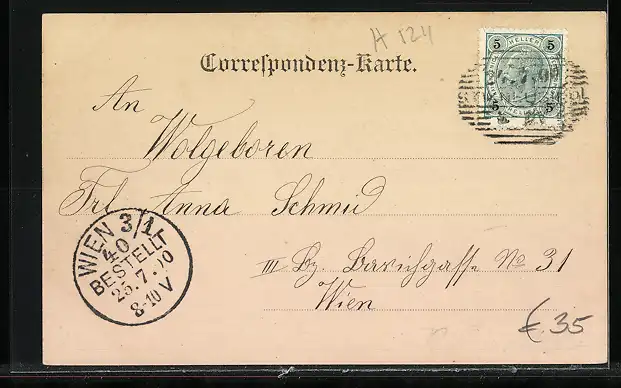 A 124
Correspondenz-Karte.
5 HELLER 5
5 5
An
Wolgeboren
Frl Anna Schmid
III Bz. Barichgasse No 31
Wien
WIEN 3/1
40
BESTELLT
25.7.00
8-10V
€ 35